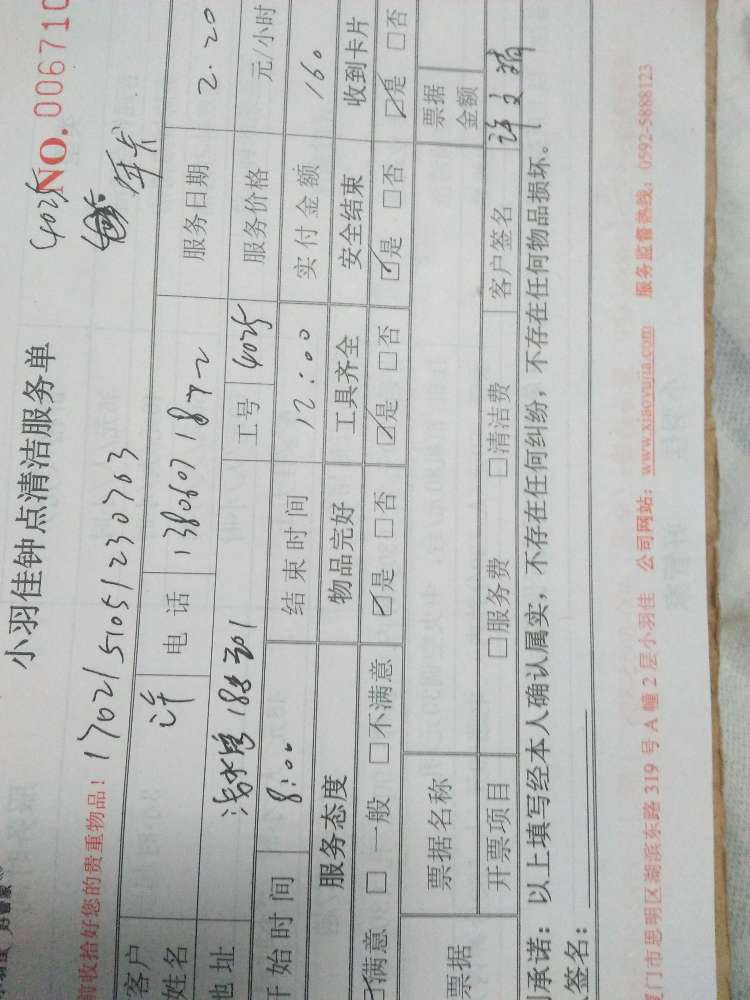 小羽佳钟点清洁服务单
NO. 006710
4025
年卡
前收拾好您的贵重物品！
1702151051230703
客户姓名 许 电话 13806071872 服务日期 2.20
地址 188 301 工号 4025 服务价格 元/小时
开始时间 8:00 结束时间 12:00 实付金额 160
服务态度 物品完好 工具齐全 安全结束 收到卡片
☑满意 □一般 □不满意 ☑是 □否 ☑是 □否 ☑是 □否 ☑是 □否
票据 票据名称 票据金额
开票项目 □服务费 □清洁费 客户签名 许文
承诺：以上填写经本人确认属实，不存在任何纠纷，不存在任何物品损坏。
签名：
门市思明区湖滨东路 319 号 A 幢 2 层小羽佳 公司网站：www.xiaoyujia.com 服务监督热线：0592-5888123